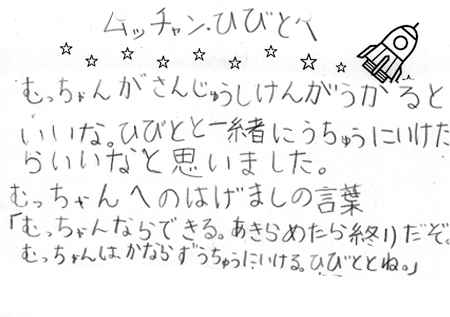 ムッチャン・ひびとへ
むっちゃんがさんじゅうしけんがうかると
いいな。ひびとと一緒にうちゅうにいけた
らいいなと思いました。
むっちゃんへのはげましの言葉
「むっちゃんならできる。あきらめたら終りだぞ。
むっちゃんは、かならずうちゅうにいける。ひびととね。」